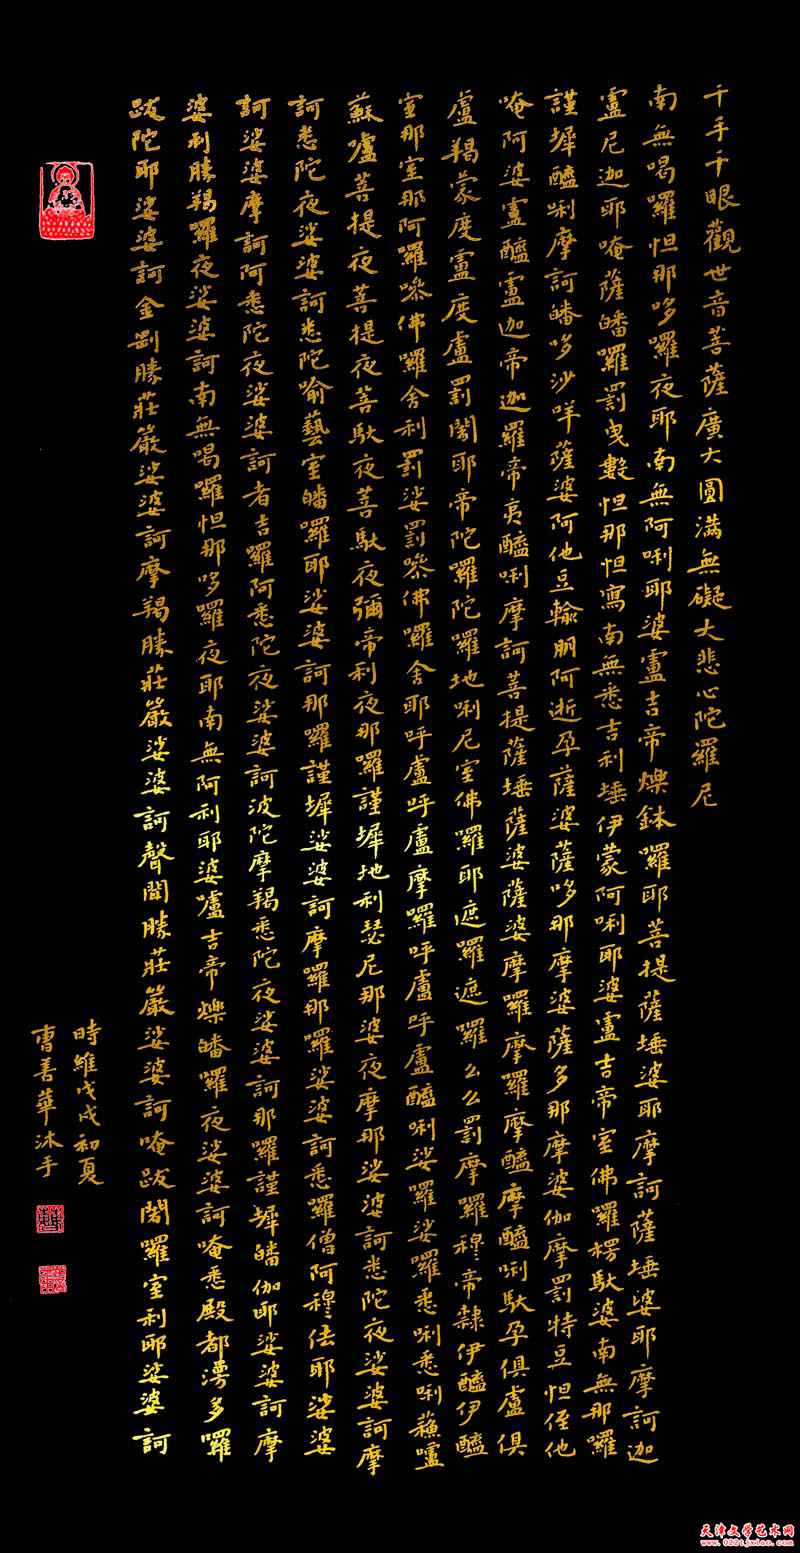 千手千眼觀世音菩薩廣大圓滿無礙大悲心陀羅尼
南無喝囉怛那哆囉夜耶南無阿唎耶婆盧吉帝爍鉢囉耶菩提薩埵婆耶摩訶薩埵婆耶摩訶迦
盧尼迦耶唵薩皤囉罰曳數怛那怛寫南無悉吉利埵伊蒙阿唎耶婆盧吉帝室佛囉楞馱婆南無那囉
謹墀醯唎摩訶皤哆沙咩薩婆阿他豆輸朋阿逝孕薩婆薩哆那摩婆薩多那摩婆伽摩罰特豆怛侄他
唵阿婆盧醯盧迦帝迦羅帝夷醯唎摩訶菩提薩埵薩婆薩婆摩囉摩囉摩醯摩醯唎馱孕俱盧俱
盧羯蒙度盧度盧罰闍耶帝陀囉陀囉地唎尼室佛囉耶遮囉遮囉么么罰摩囉穆帝隸伊醯伊醯
室那室那阿囉嘇佛囉舍利罰娑罰嘇佛囉舍耶呼盧呼盧摩囉呼盧呼盧醯唎娑囉娑囉悉唎悉唎蘇嚧
蘇嚧菩提夜菩提夜菩馱夜菩馱夜彌帝利夜那囉謹墀地利瑟尼那婆夜摩那娑婆訶悉陀夜娑婆訶摩
訶悉陀夜娑婆訶悉陀喻藝室皤囉耶娑婆訶那囉謹墀娑婆訶摩囉那囉娑婆訶悉囉僧阿穆佉耶娑婆
訶娑婆摩訶阿悉陀夜娑婆訶者吉囉阿悉陀夜娑婆訶波陀摩羯悉陀夜娑婆訶那囉謹墀皤伽耶娑婆訶摩
婆利勝羯囉夜娑婆訶南無喝囉怛那哆囉夜耶南無阿利耶婆嚧吉帝爍皤囉夜娑婆訶唵悉殿都漫多囉
跋陀耶娑婆訶金剛勝莊嚴娑婆訶摩羯勝莊嚴娑婆訶聲聞勝莊嚴娑婆訶唵跋闍囉室利耶娑婆訶
時維戊戌初夏
曹善華沐手
天津文学艺术网
www.022tjxxiao.com